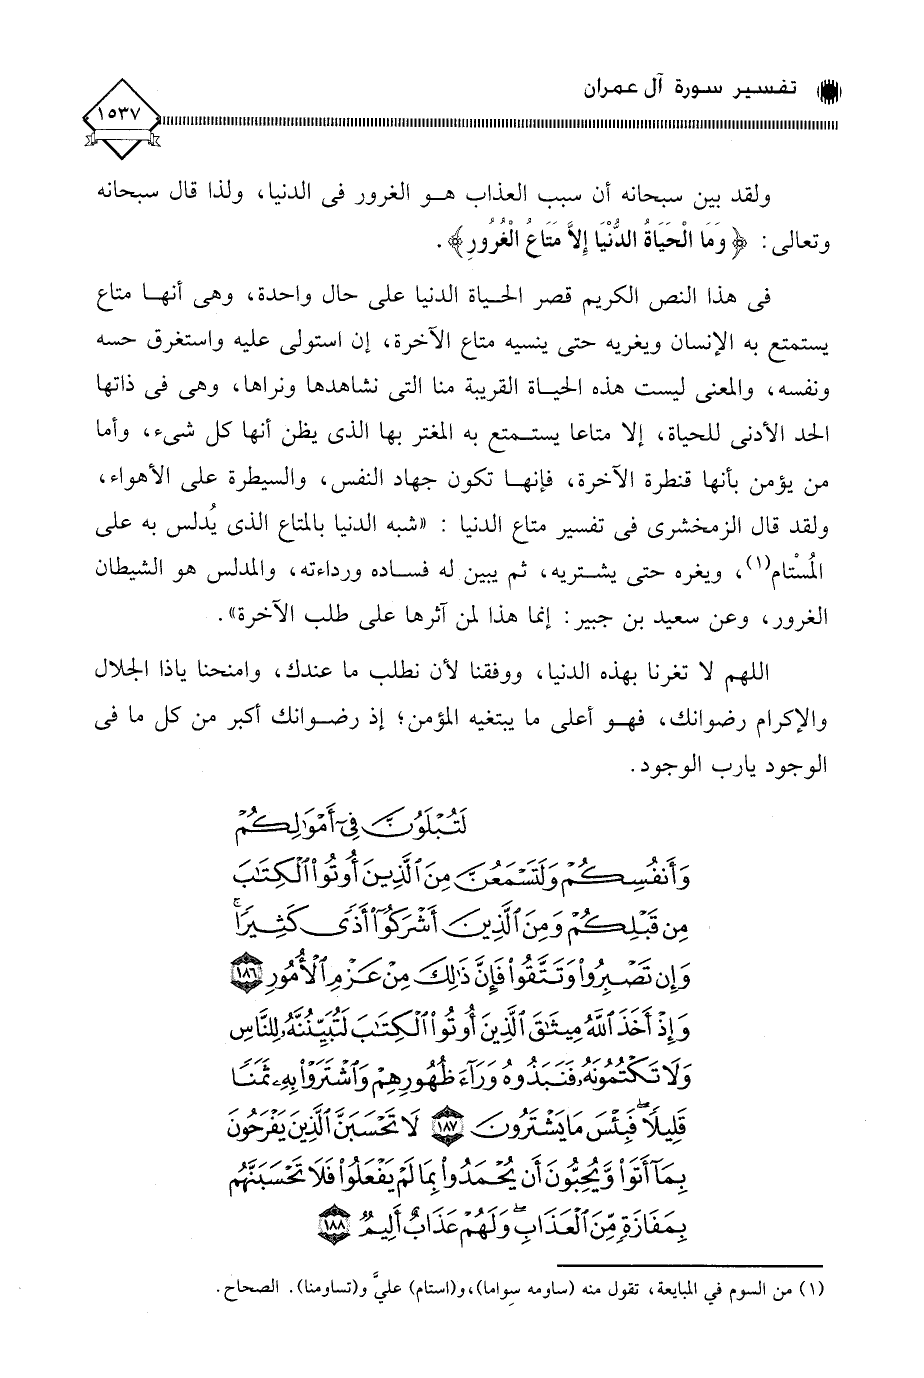 تفسير سورة آل عمران
١٥٣٧
ولقد بين سبحانه أن سبب العذاب هـو الغرور فى الدنيا، ولذا قال سبحانه
وتعالى: ﴿ وَمَا الْحَيَاةُ الدُّنْيَا إِلاَّ مَتَاعُ الْغُرُورِ﴾ .
فى هذا النص الكريم قصر الحياة الدنيا على حال واحدة، وهى أنهـا متاع
يستمتع به الإنسان ويغريه حتى ينسيه متاع الآخرة، إن استولى عليه واستغرق حسه
ونفسه، والمعنى ليست هذه الحياة القريبة منا التى نشاهدها ونراها، وهى فى ذاتها
الحد الأدنى للحياة، إلا متاعا يستـمتع به المغتر بها الذى يظن أنها كل شىء، وأما
من يؤمن بأنها قنطرة الآخرة، فإنهـا تكون جهاد النفس، والسيطرة على الأهواء،
ولقد قال الزمخشرى فى تفسير متاع الدنيا : «شبه الدنيا بالمتاع الذى يُدلس به على
المُسْتام(١)، ويغره حتى يشـتريه، ثم يبين له فسـاده ورداءته، والمدلس هو الشيطان
الغرور، وعن سعيد بن جبير: إنما هذا لمن آثرها على طلب الآخرة».
اللهم لا تغرنا بهذه الدنيا، ووفقنا لأن نطلب ما عندك، وامنحنا ياذا الجلال
والإكرام رضوانك، فهـو أعلى ما يبتغيه المؤمن؛ إذ رضـوانك أكبر من كل ما فى
الوجود يارب الوجود.
لَتُبْلَوُنَّ فِىٓ أَمْوَٰلِكُمْ
وَأَنفُسِكُمْ وَلَتَسْمَعُنَّ مِنَ ٱلَّذِينَ أُوتُوا۟ ٱلْكِتَٰبَ
مِن قَبْلِكُمْ وَمِنَ ٱلَّذِينَ أَشْرَكُوٓا۟ أَذًى كَثِيرًا ۚ
وَإِن تَصْبِرُوا۟ وَتَتَّقُوا۟ فَإِنَّ ذَٰلِكَ مِنْ عَزْمِ ٱلْأُمُورِ ١٨٦
وَإِذْ أَخَذَ ٱللَّهُ مِيثَٰقَ ٱلَّذِينَ أُوتُوا۟ ٱلْكِتَٰبَ لَتُبَيِّنُنَّهُۥ لِلنَّاسِ
وَلَا تَكْتُمُونَهُۥ فَنَبَذُوهُ وَرَآءَ ظُهُورِهِمْ وَٱشْتَرَوْا۟ بِهِۦ ثَمَنًا
قَلِيلًا ۖ فَبِئْسَ مَا يَشْتَرُونَ ١٨٧ لَا تَحْسَبَنَّ ٱلَّذِينَ يَفْرَحُونَ
بِمَآ أَتَوا۟ وَّيُحِبُّونَ أَن يُحْمَدُوا۟ بِمَا لَمْ يَفْعَلُوا۟ فَلَا تَحْسَبَنَّهُم
بِمَفَازَةٍ مِّنَ ٱلْعَذَابِ ۖ وَلَهُمْ عَذَابٌ أَلِيمٌ ١٨٨
(١) من السوم في المبايعة، تقول منه (ساومه سِواما)، و(استام) عليَّ و(تساومنا). الصحاح.